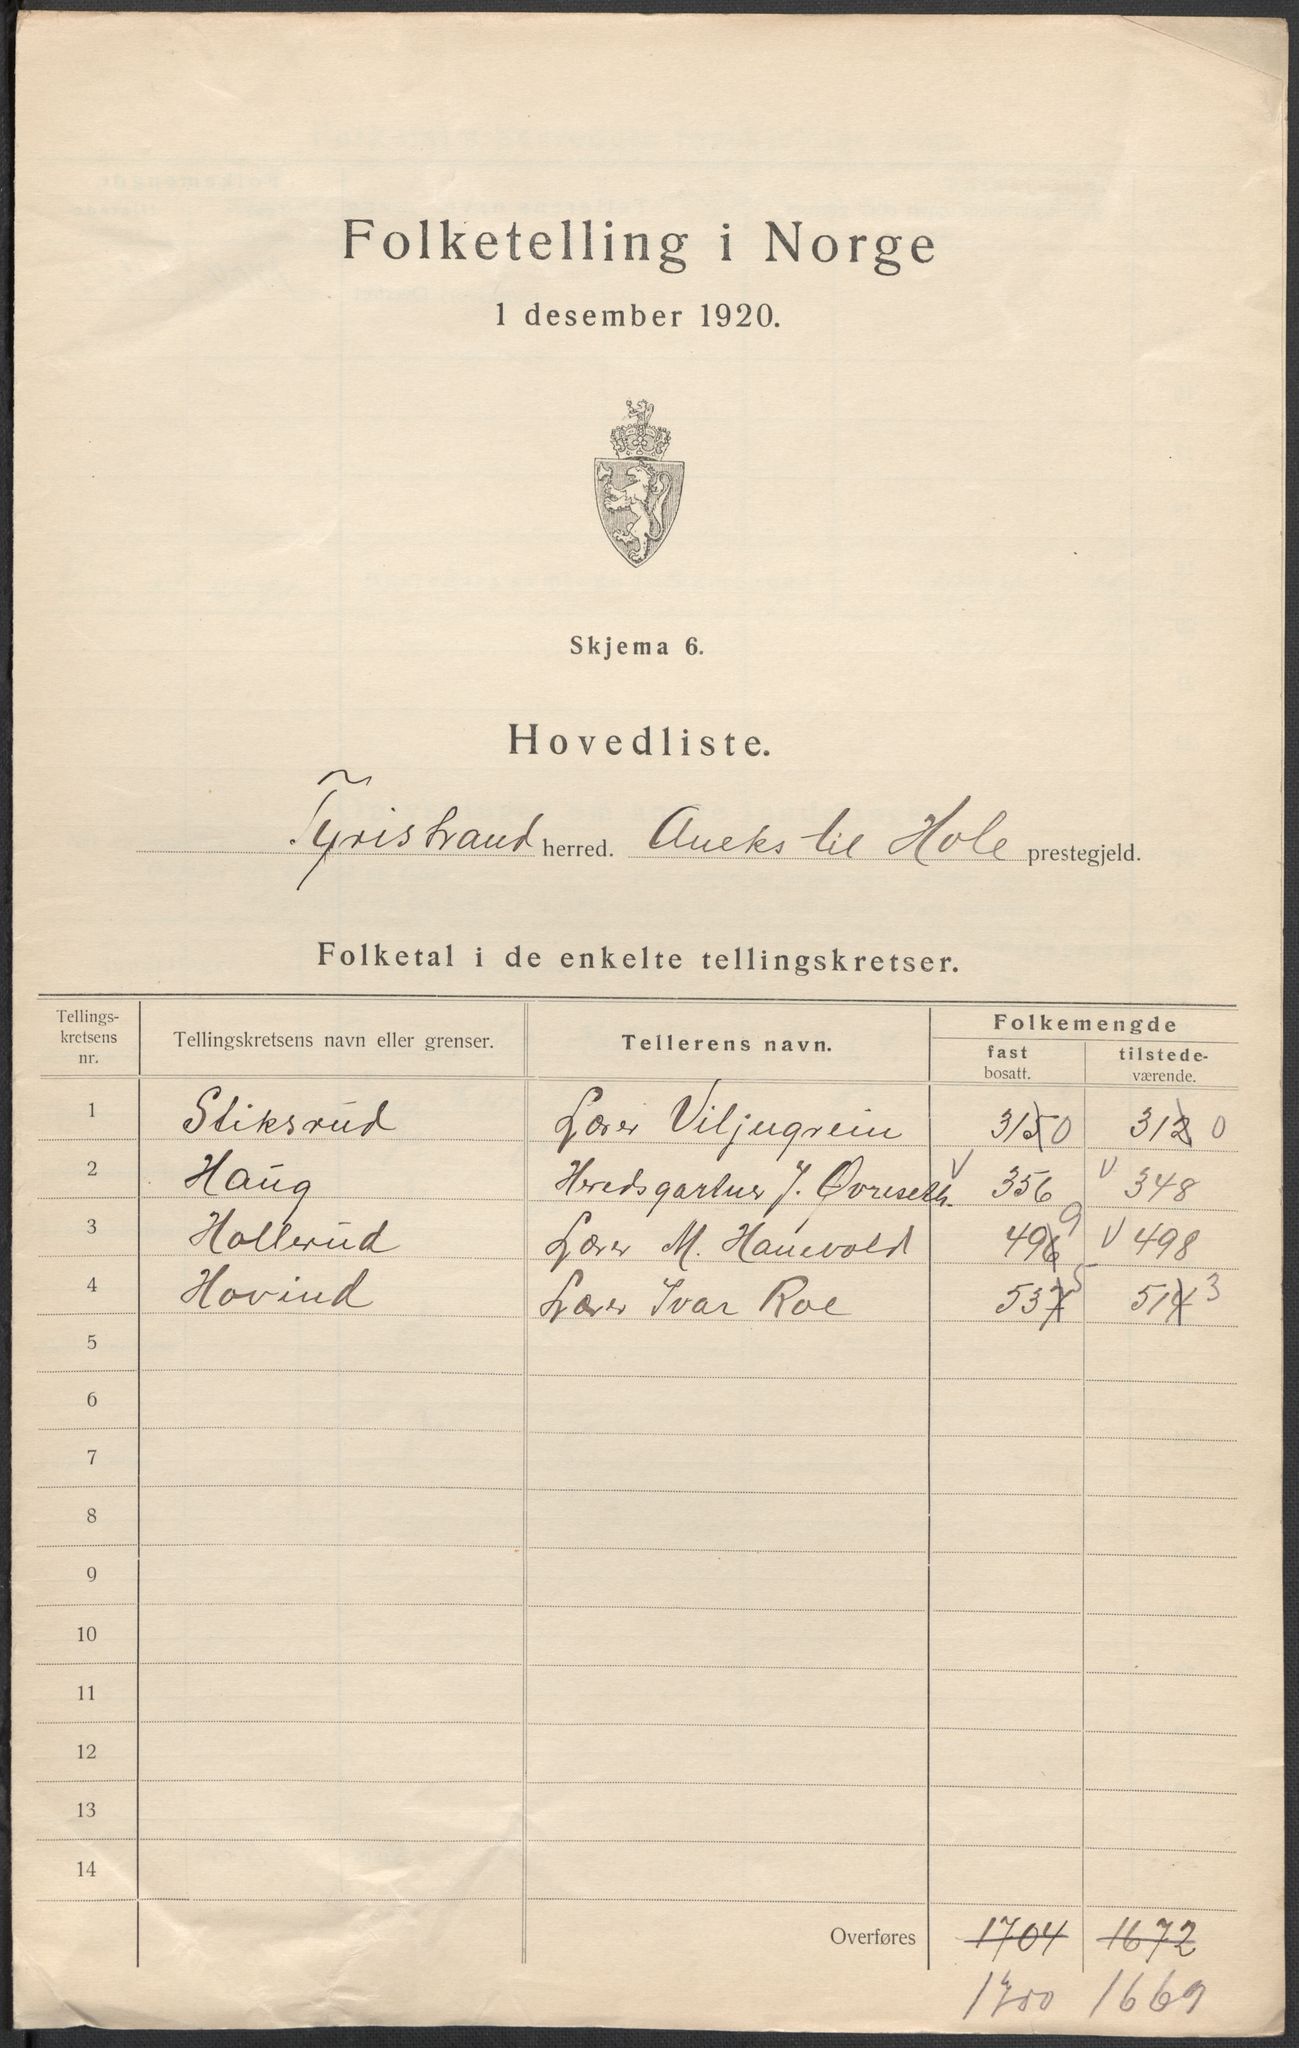 Folketelling i Norge
1 desember 1920.
Skjema 6.
Hovedliste.
Tyristrand herred. Aneks til Hole prestegjeld.
Folketal i de enkelte tellingskretser.
Tellings-kretsens nr. Tellingskretsens navn eller grenser. Tellerens navn. Folkemengde fast bosatt. tilstede-værende.
1 Stiksrud Lærer Viljugrein 315 0 312 0
2 Haug Heredsgartner J. Øvreseth. V 356 V 348
3 Hollerud Lærer M. Hanevold 496 9 V 498
4 Hovind Lærer Ivar Roe 537 5 514 3
5
6
7
8
9
10
11
12
13
14
Overføres 1704 1672
1700 1669